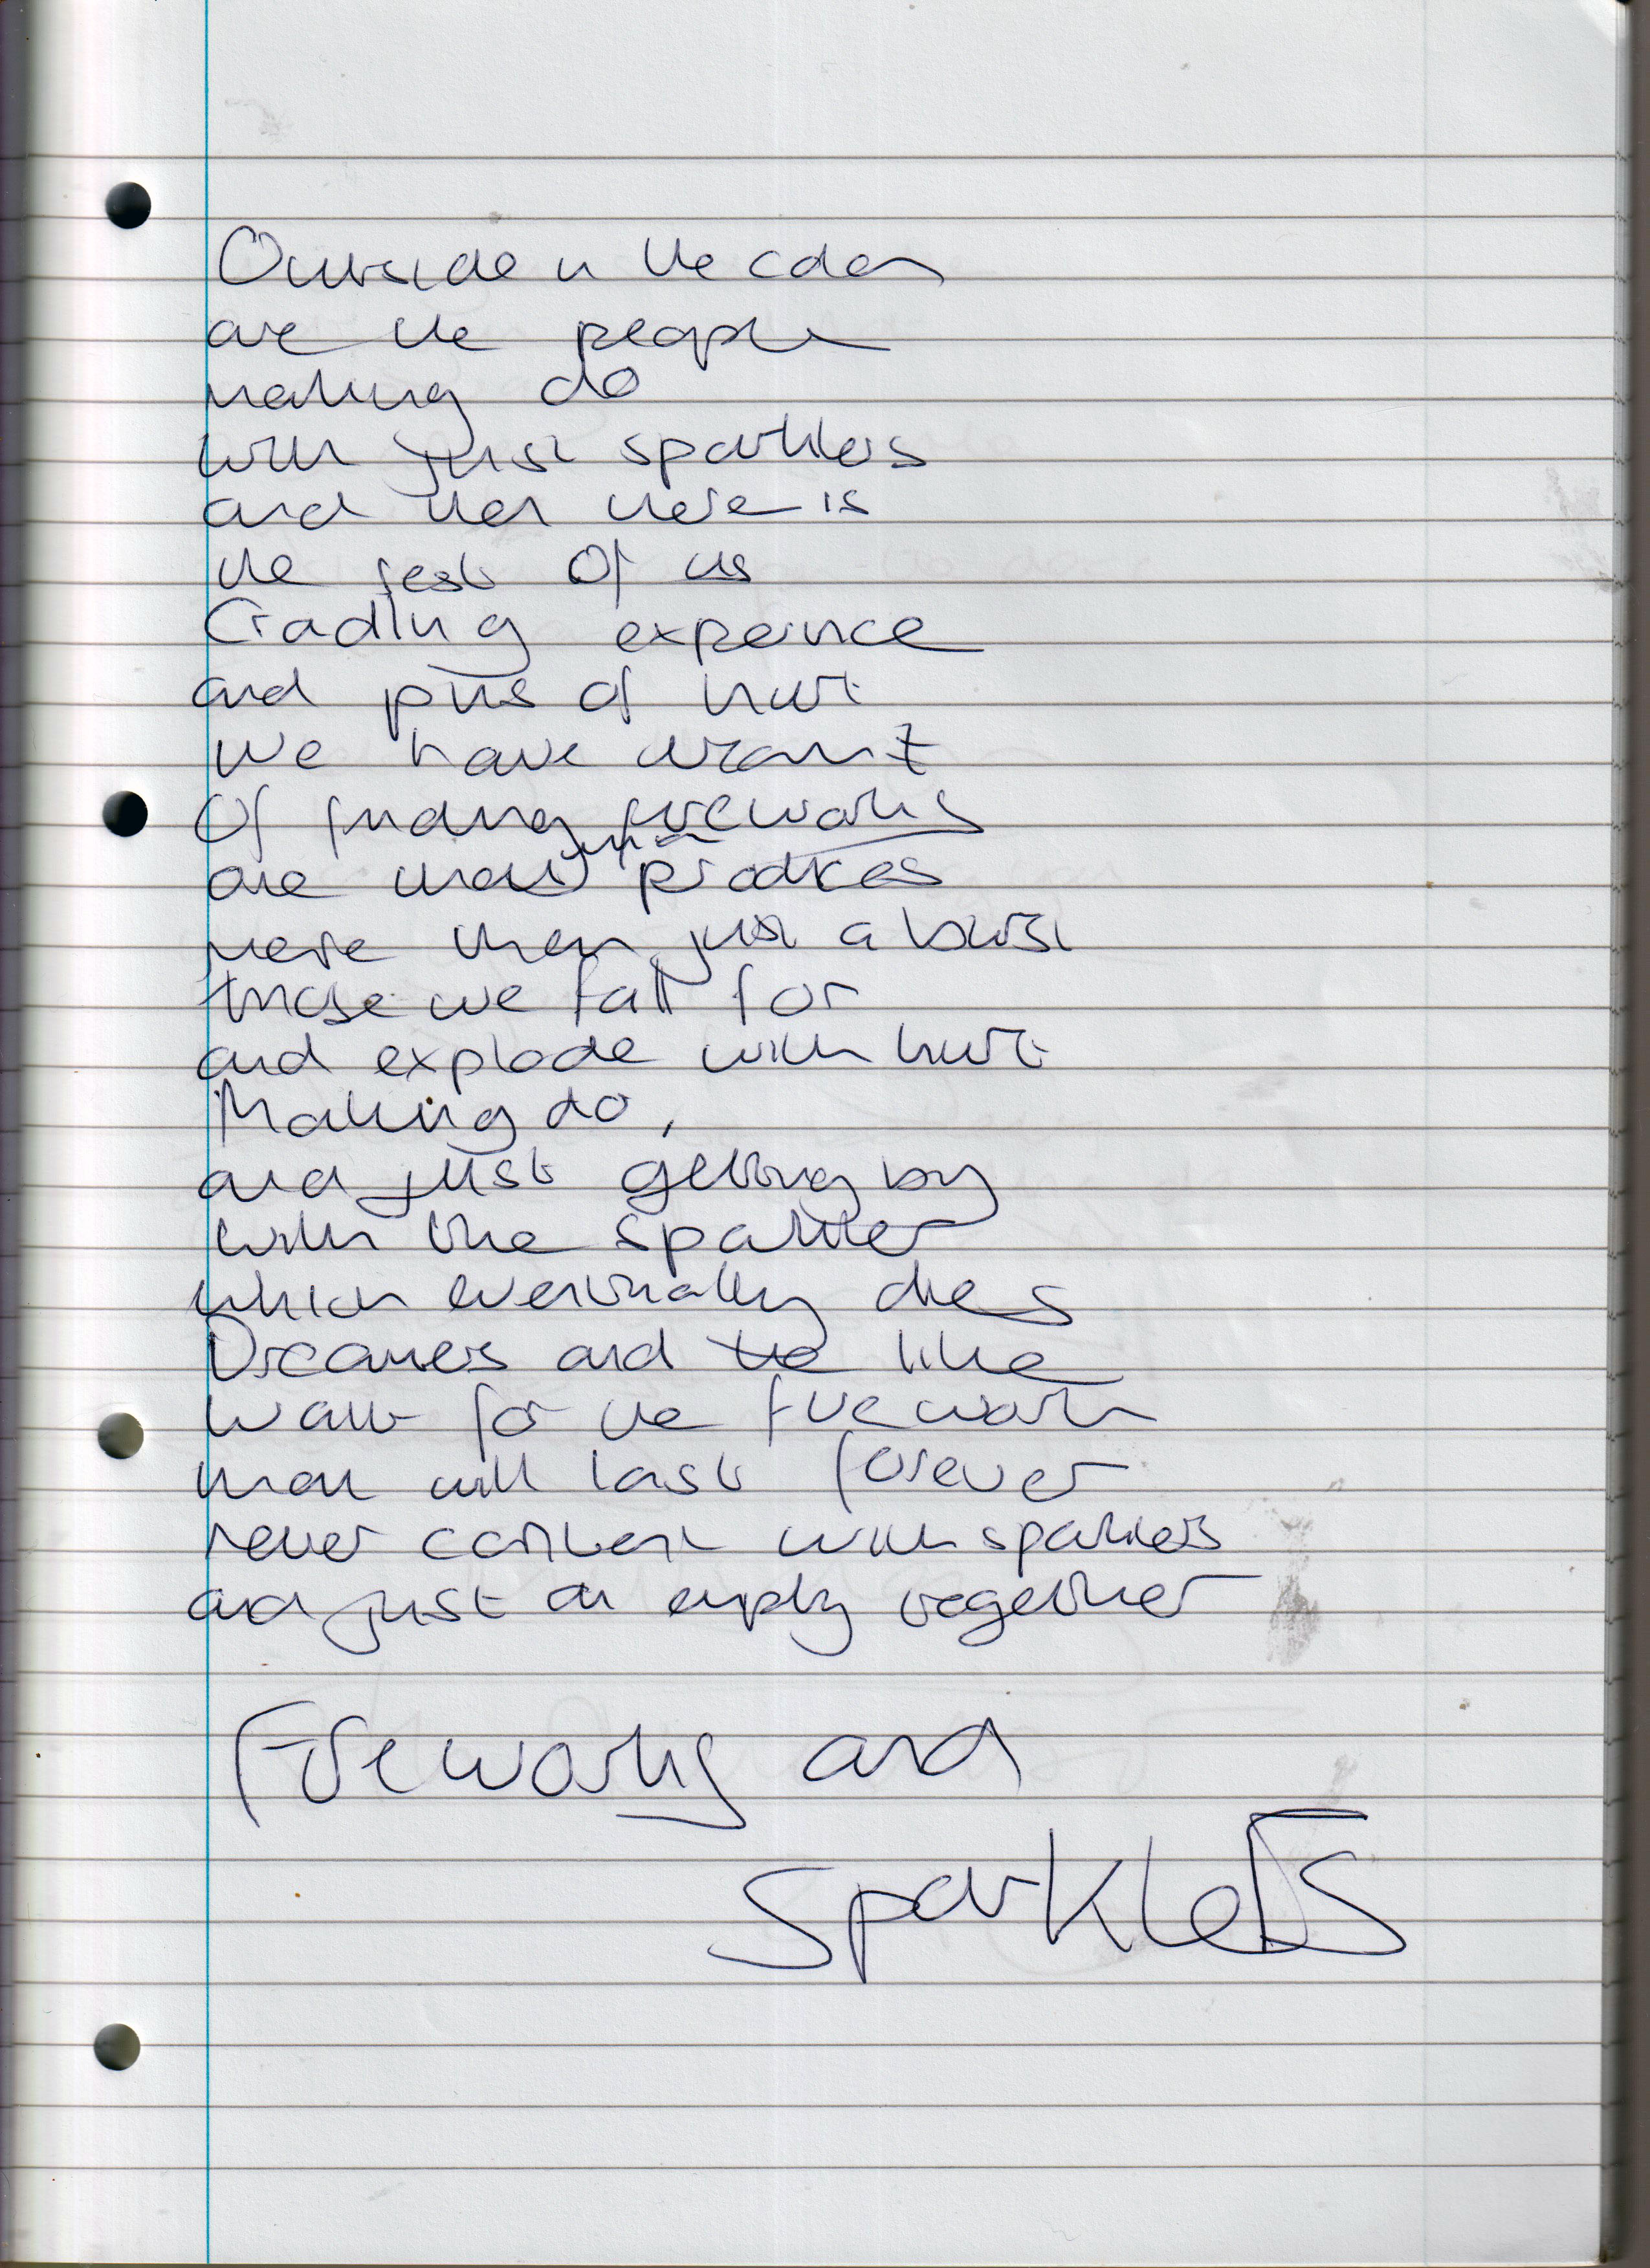 Outside in the cold
are the people
making do
with just sparklers
and then there is
the rest of us
Cradling experince
and pits of hurt
We have
Of finding fireworks
are that produces
more than just a burst
those we fall for
and explode with hurt
Making do,
and just getting by
with the sparkler
which eventually dies
Dreamers and the like
wait for the firework
that will last forever
never content with sparklers
and just an empty together
Fireworks and
Sparklers